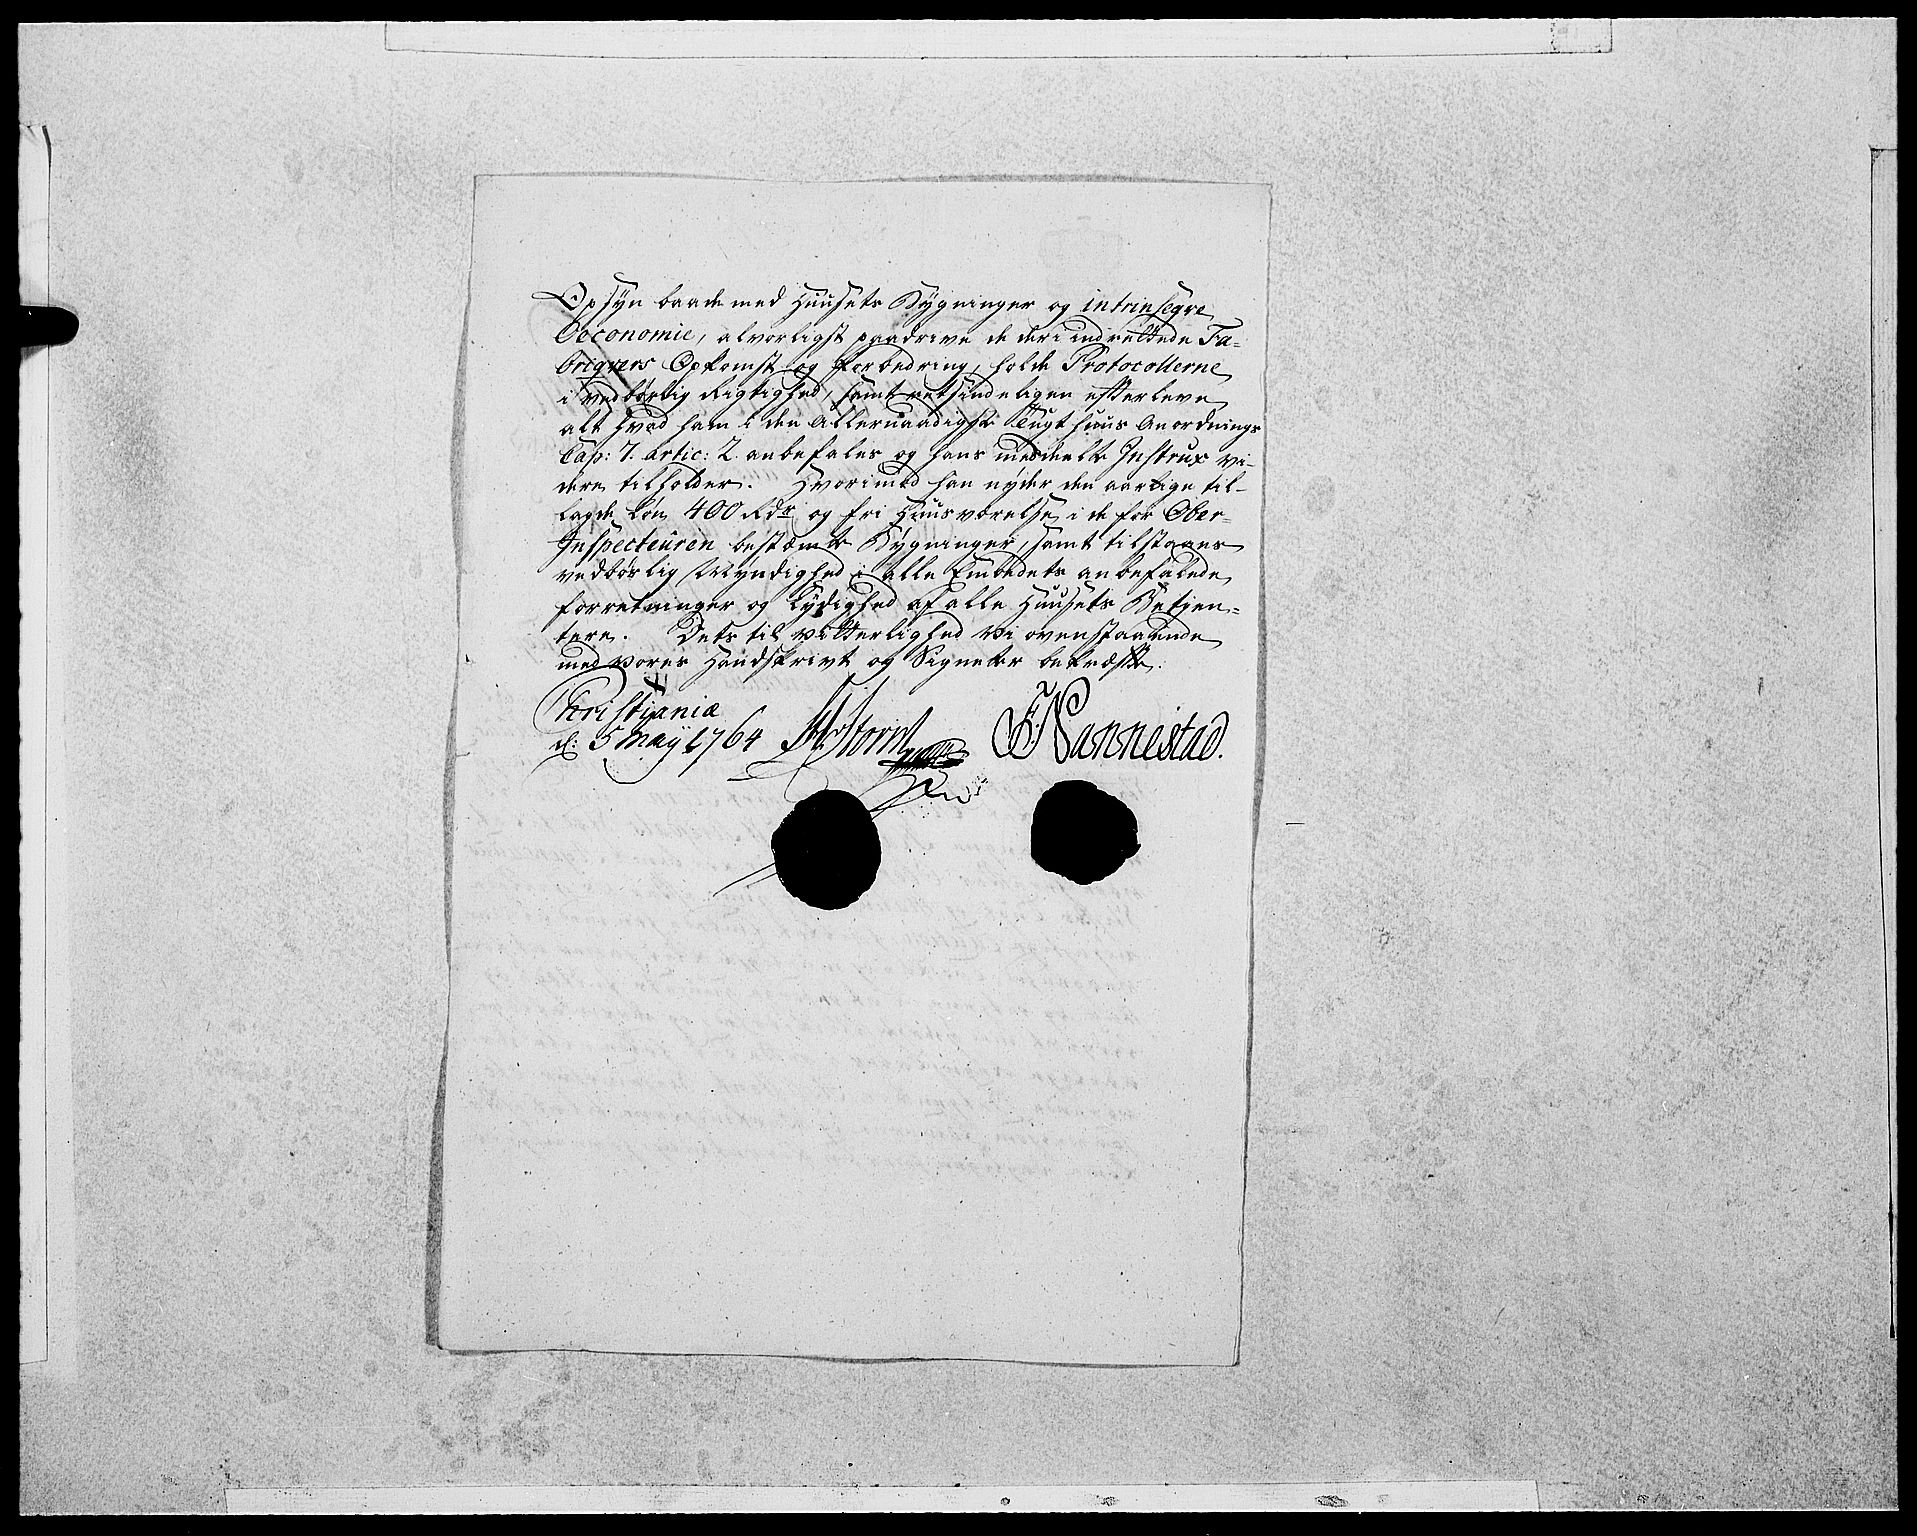 Opsyn baade med Huusets Bygninger og intrinseqve
Oeconomie, alvorligst paadrive de deri indrettede Fa-
briqvers Opkomst og forbedring, holde Protocollerne
i vedbørlig Rigtighed, samt retsindeligen efterleve
alt hvad ham i den Allernaadigste Tugthuus Anordnings
Cap: 7. artic: 2. anbefales og hans meddeelte Instrux vi-
dere tilholder. Hvorimod han nyder den aarlige til-
lagde Løn 400 Rdr og fri Huusværelse i de for Ober-
Inspecteuren bestemte Bygninger, samt tilstaaes
vedbørlig Myndighed i alle Embedets anbefalede
forretninger og Lydighed af alle Huusets Betien-
tere. Dets til Vitterlighed vi ovenstaaende
med vores Handskrivt og Signeter bekræfte.
Christiania
d: 5 May 1764 Storm F. Nannestad.